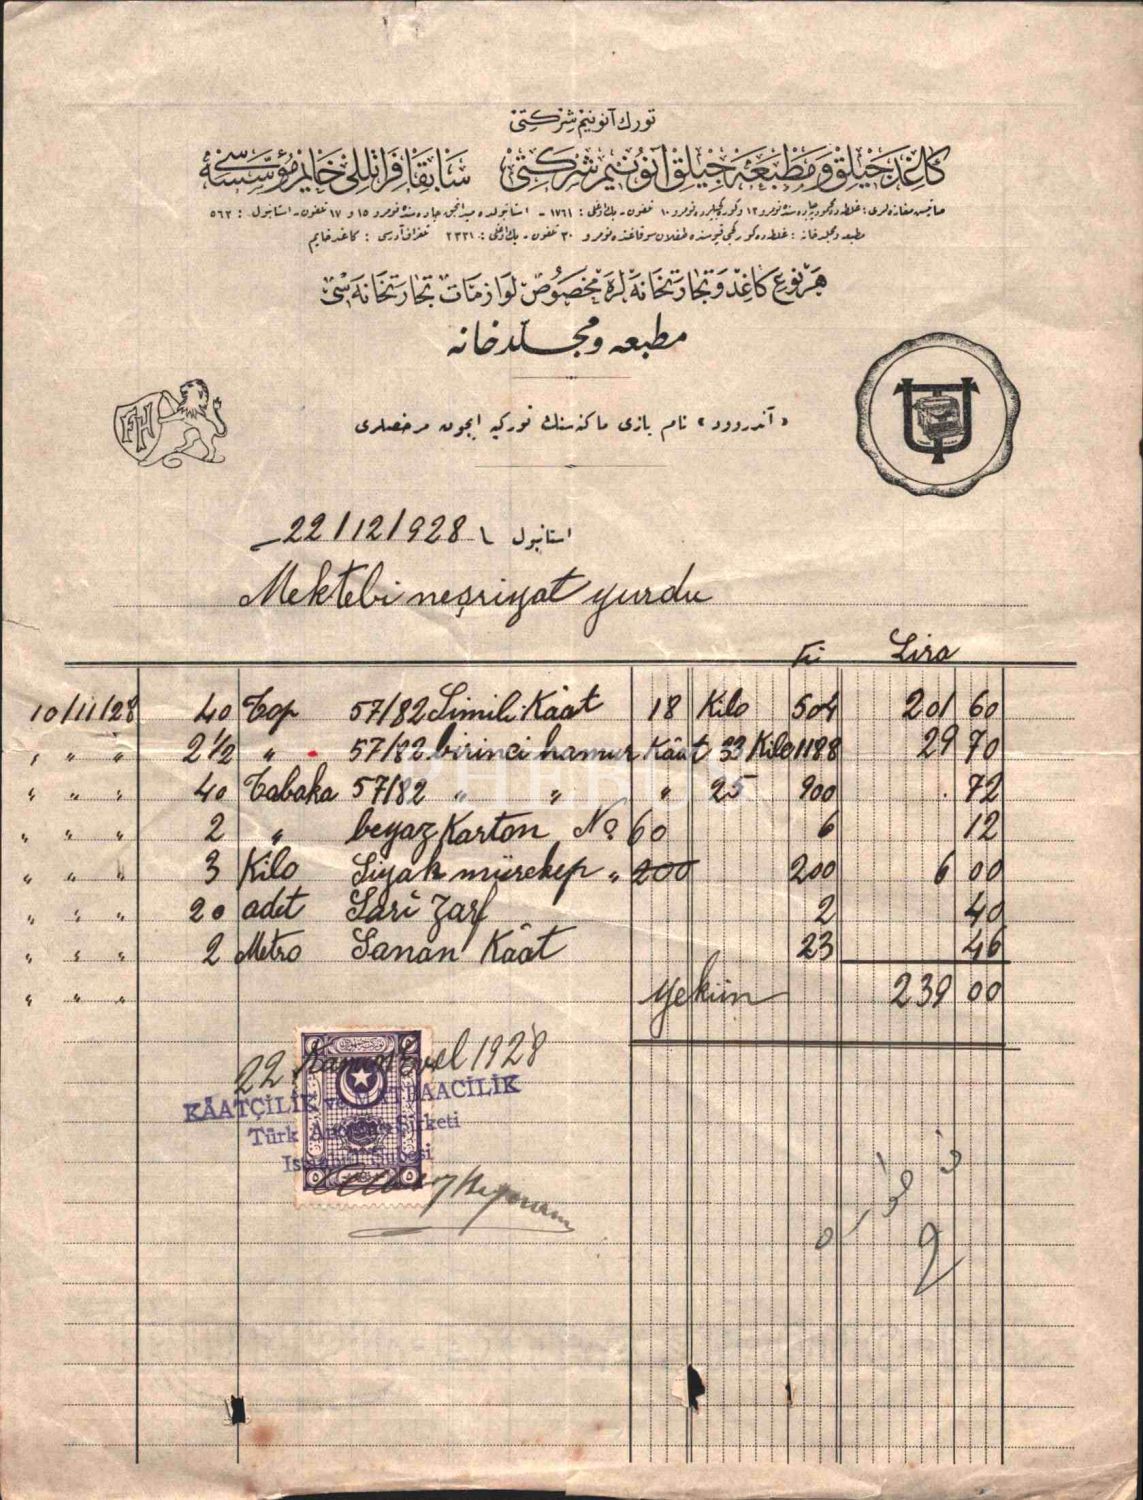 تورك آنونیم شركتی
كاغدجیلق و مطبعه‌جیلق آنونیم شركتی سابقا فراتللی خایم مؤسسه‌سی
هر نوع كاغد و تجارتخانه‌لره مخصوص لوازمات تجارتخانه‌سی
مطبعه و مجلدخانه
FH
استانبول 22/12/928
Mektebi neşriyat yurdu
Fi Lira
10/11/28 40 Top 57/82 Simili Kâat 18 Kilo 504 201 60
" " " 2 1/2 " 57/82 birinci hamur Kâat 33 Kilo 1188 29 70
" " " 40 Tabaka 57/82 " " " 25 900 . 72
" " " 2 " beyaz Karton No 60 6 12
" " " 3 Kilo Siyah mürekep " 200 200 6 00
" " " 20 adet Sarî Zarf 2 40
" " " 2 Metro Sanan Kâat 23 46
" " " yekûn 239 00
22 Kanun Evel 1928
KÂATÇİLİK ve MATBAACİLİK
Türk Anonim Şirketi
Istanbul Şubesi